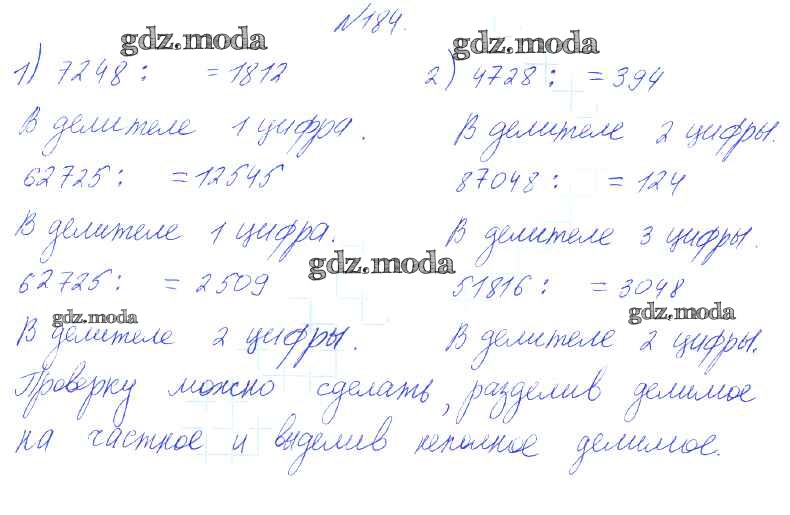 №184.
gdz.moda gdz.moda
1) 7248 : = 1812 2) 4728 : = 394
В делителе 1 цифра. В делителе 2 цифры.
62725 : = 12545 87048 : = 124
В делителе 1 цифра. В делителе 3 цифры.
gdz.moda
62725 : = 2509 51816 : = 3048
gdz.moda gdz.moda
В делителе 2 цифры. В делителе 2 цифры.
Проверку можно сделать, разделив делимое
на частное и выделив неполное делимое.